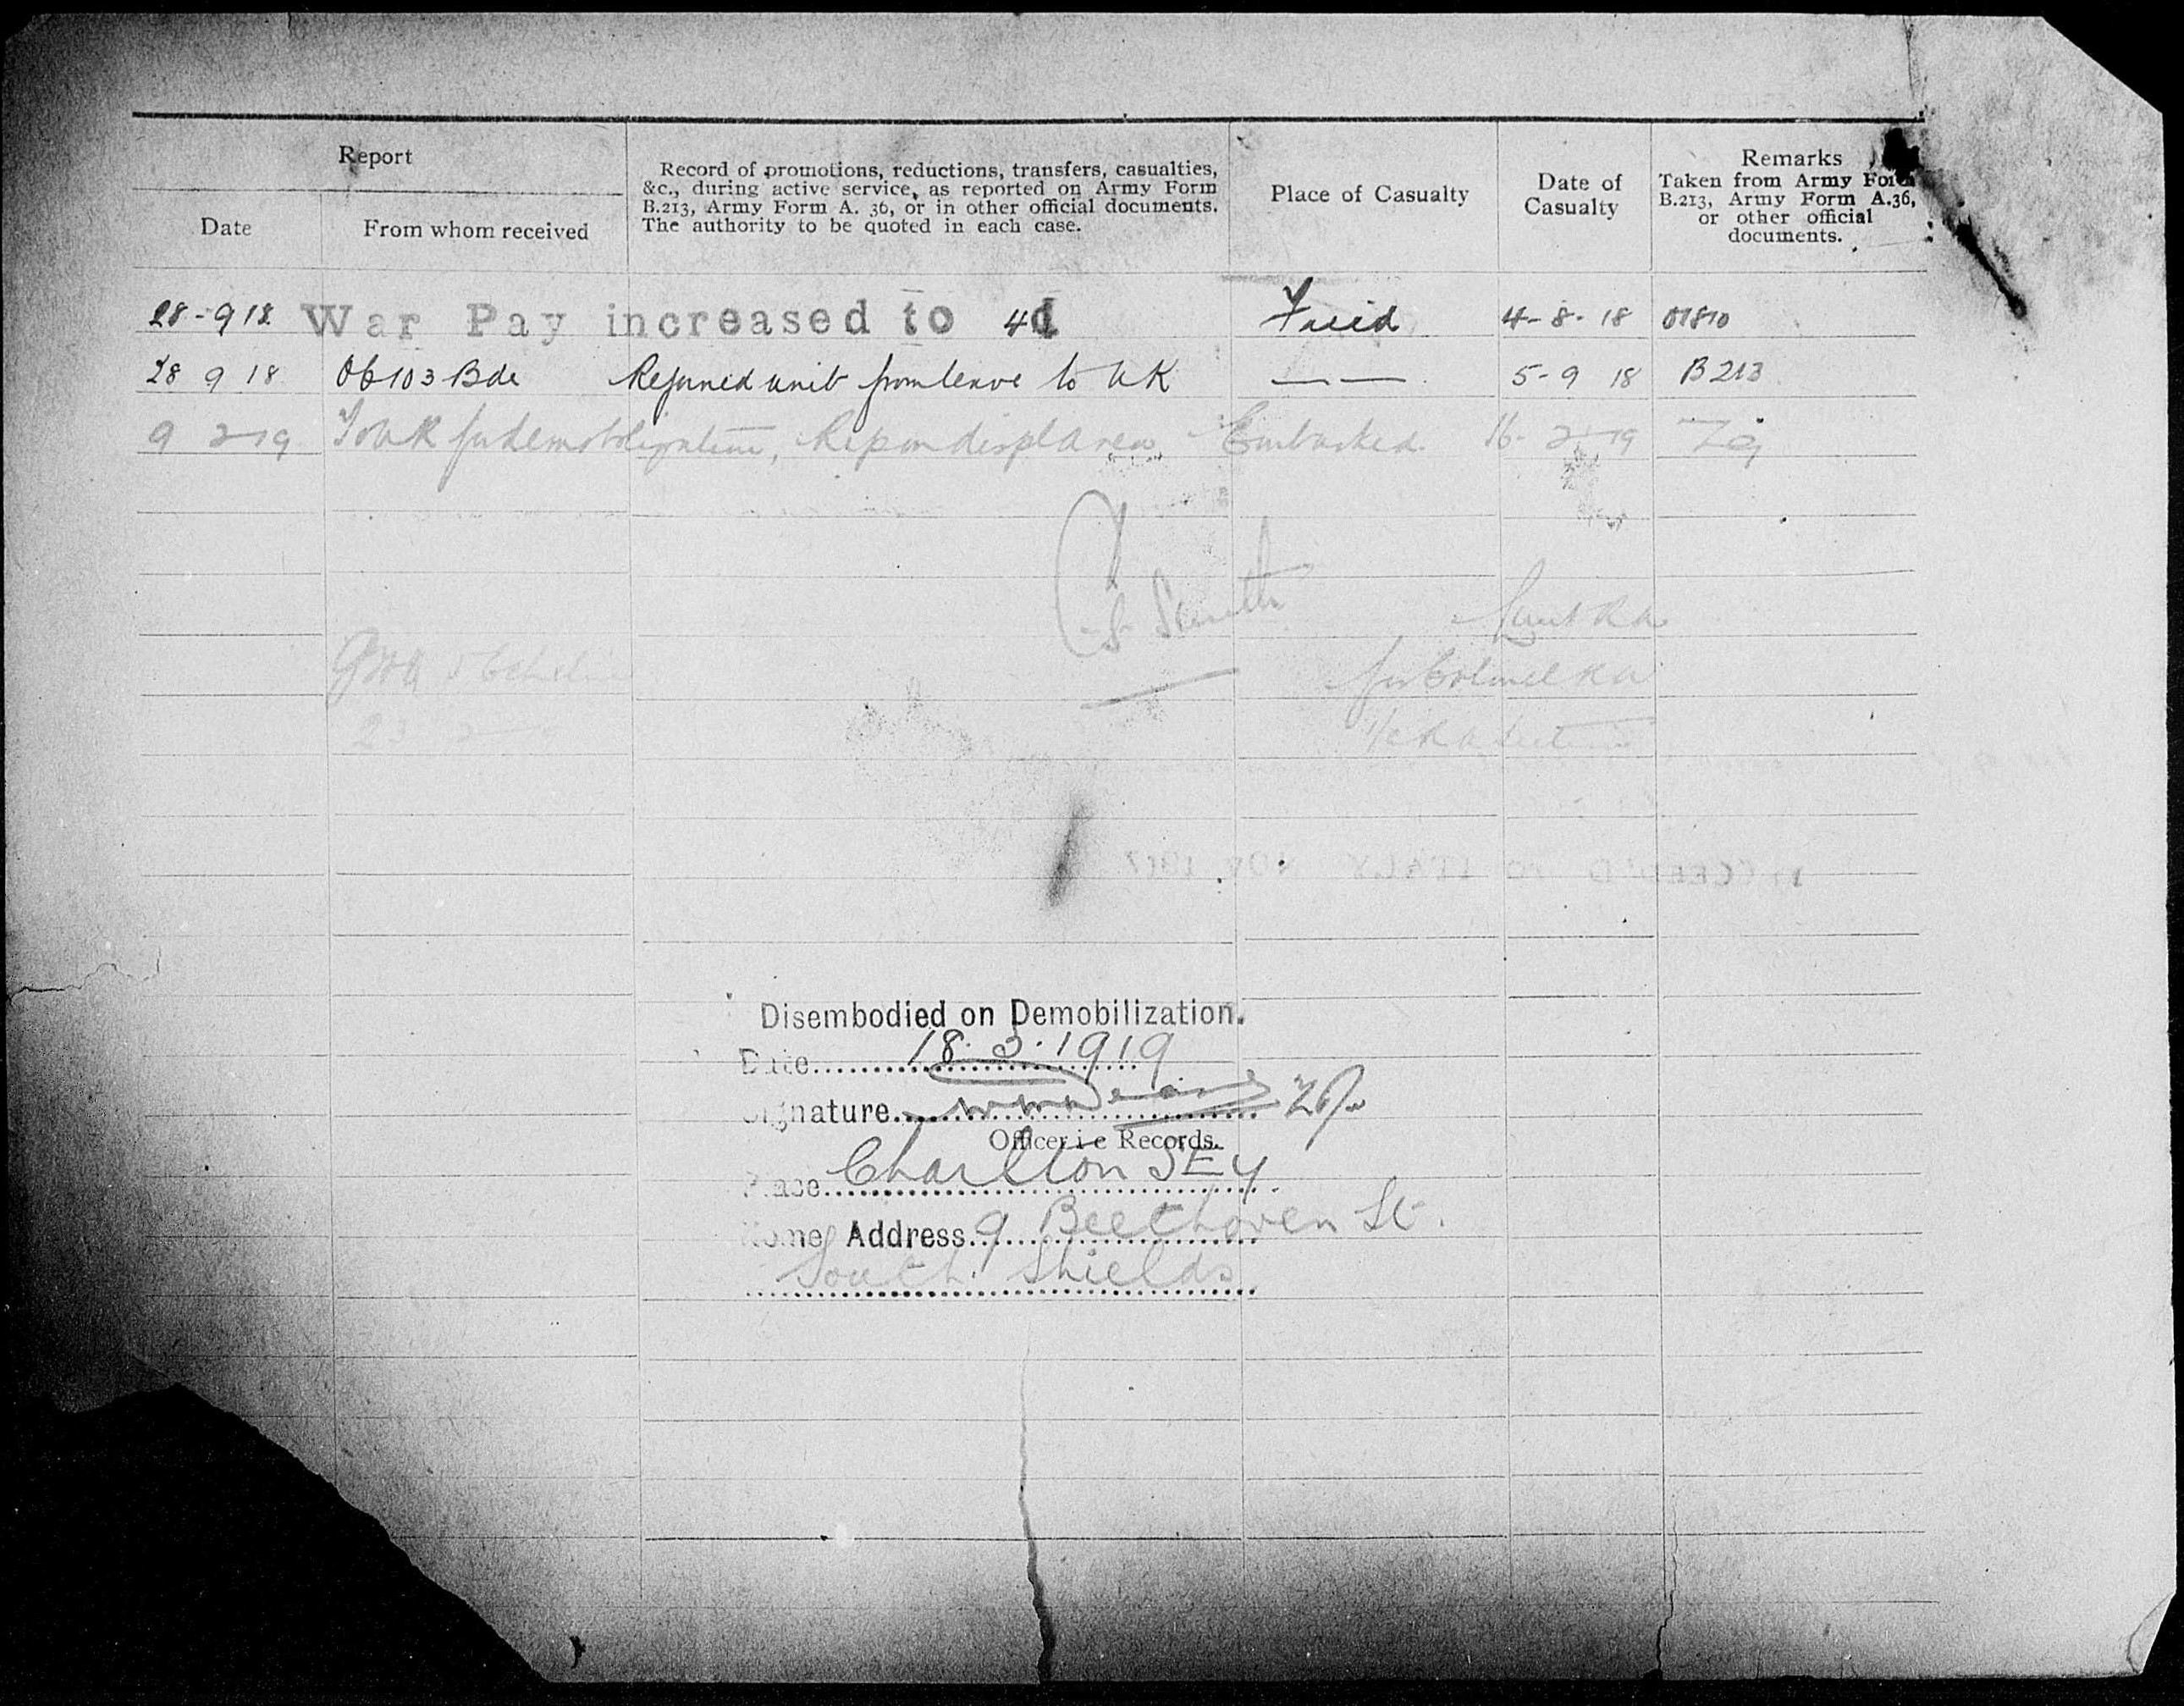 Report
Date
From whom received
Record of promotions, reductions, transfers, casualties,
&c., during active service, as reported on Army Form
B.213, Army Form A. 36, or in other official documents.
The authority to be quoted in each case.
Place of Casualty
Date of
Casualty
Remarks
Taken from Army Form
B.213, Army Form A.36,
or other official
documents.
28-9 18 War Pay increased to 4d Field 4-8-18 01810
28 9 18 OC 103 Bde Rejoined unit from leave to UK — — 5-9 18 B 213
9 2 19 To UK for demobilization, Ripon displ area Embarked 16-2-19
S Smith
Lieut RA
for Colonel RA
i/c RA Section
GHQ 3 Echelon
PROCEED'D TO ITALY NOV 1917
Disembodied on Demobilization.
Date 18.3.1919
Signature
Officer i c Records.
Place Charlton SE 7
Home Address 9 Beethoven St.
South Shields